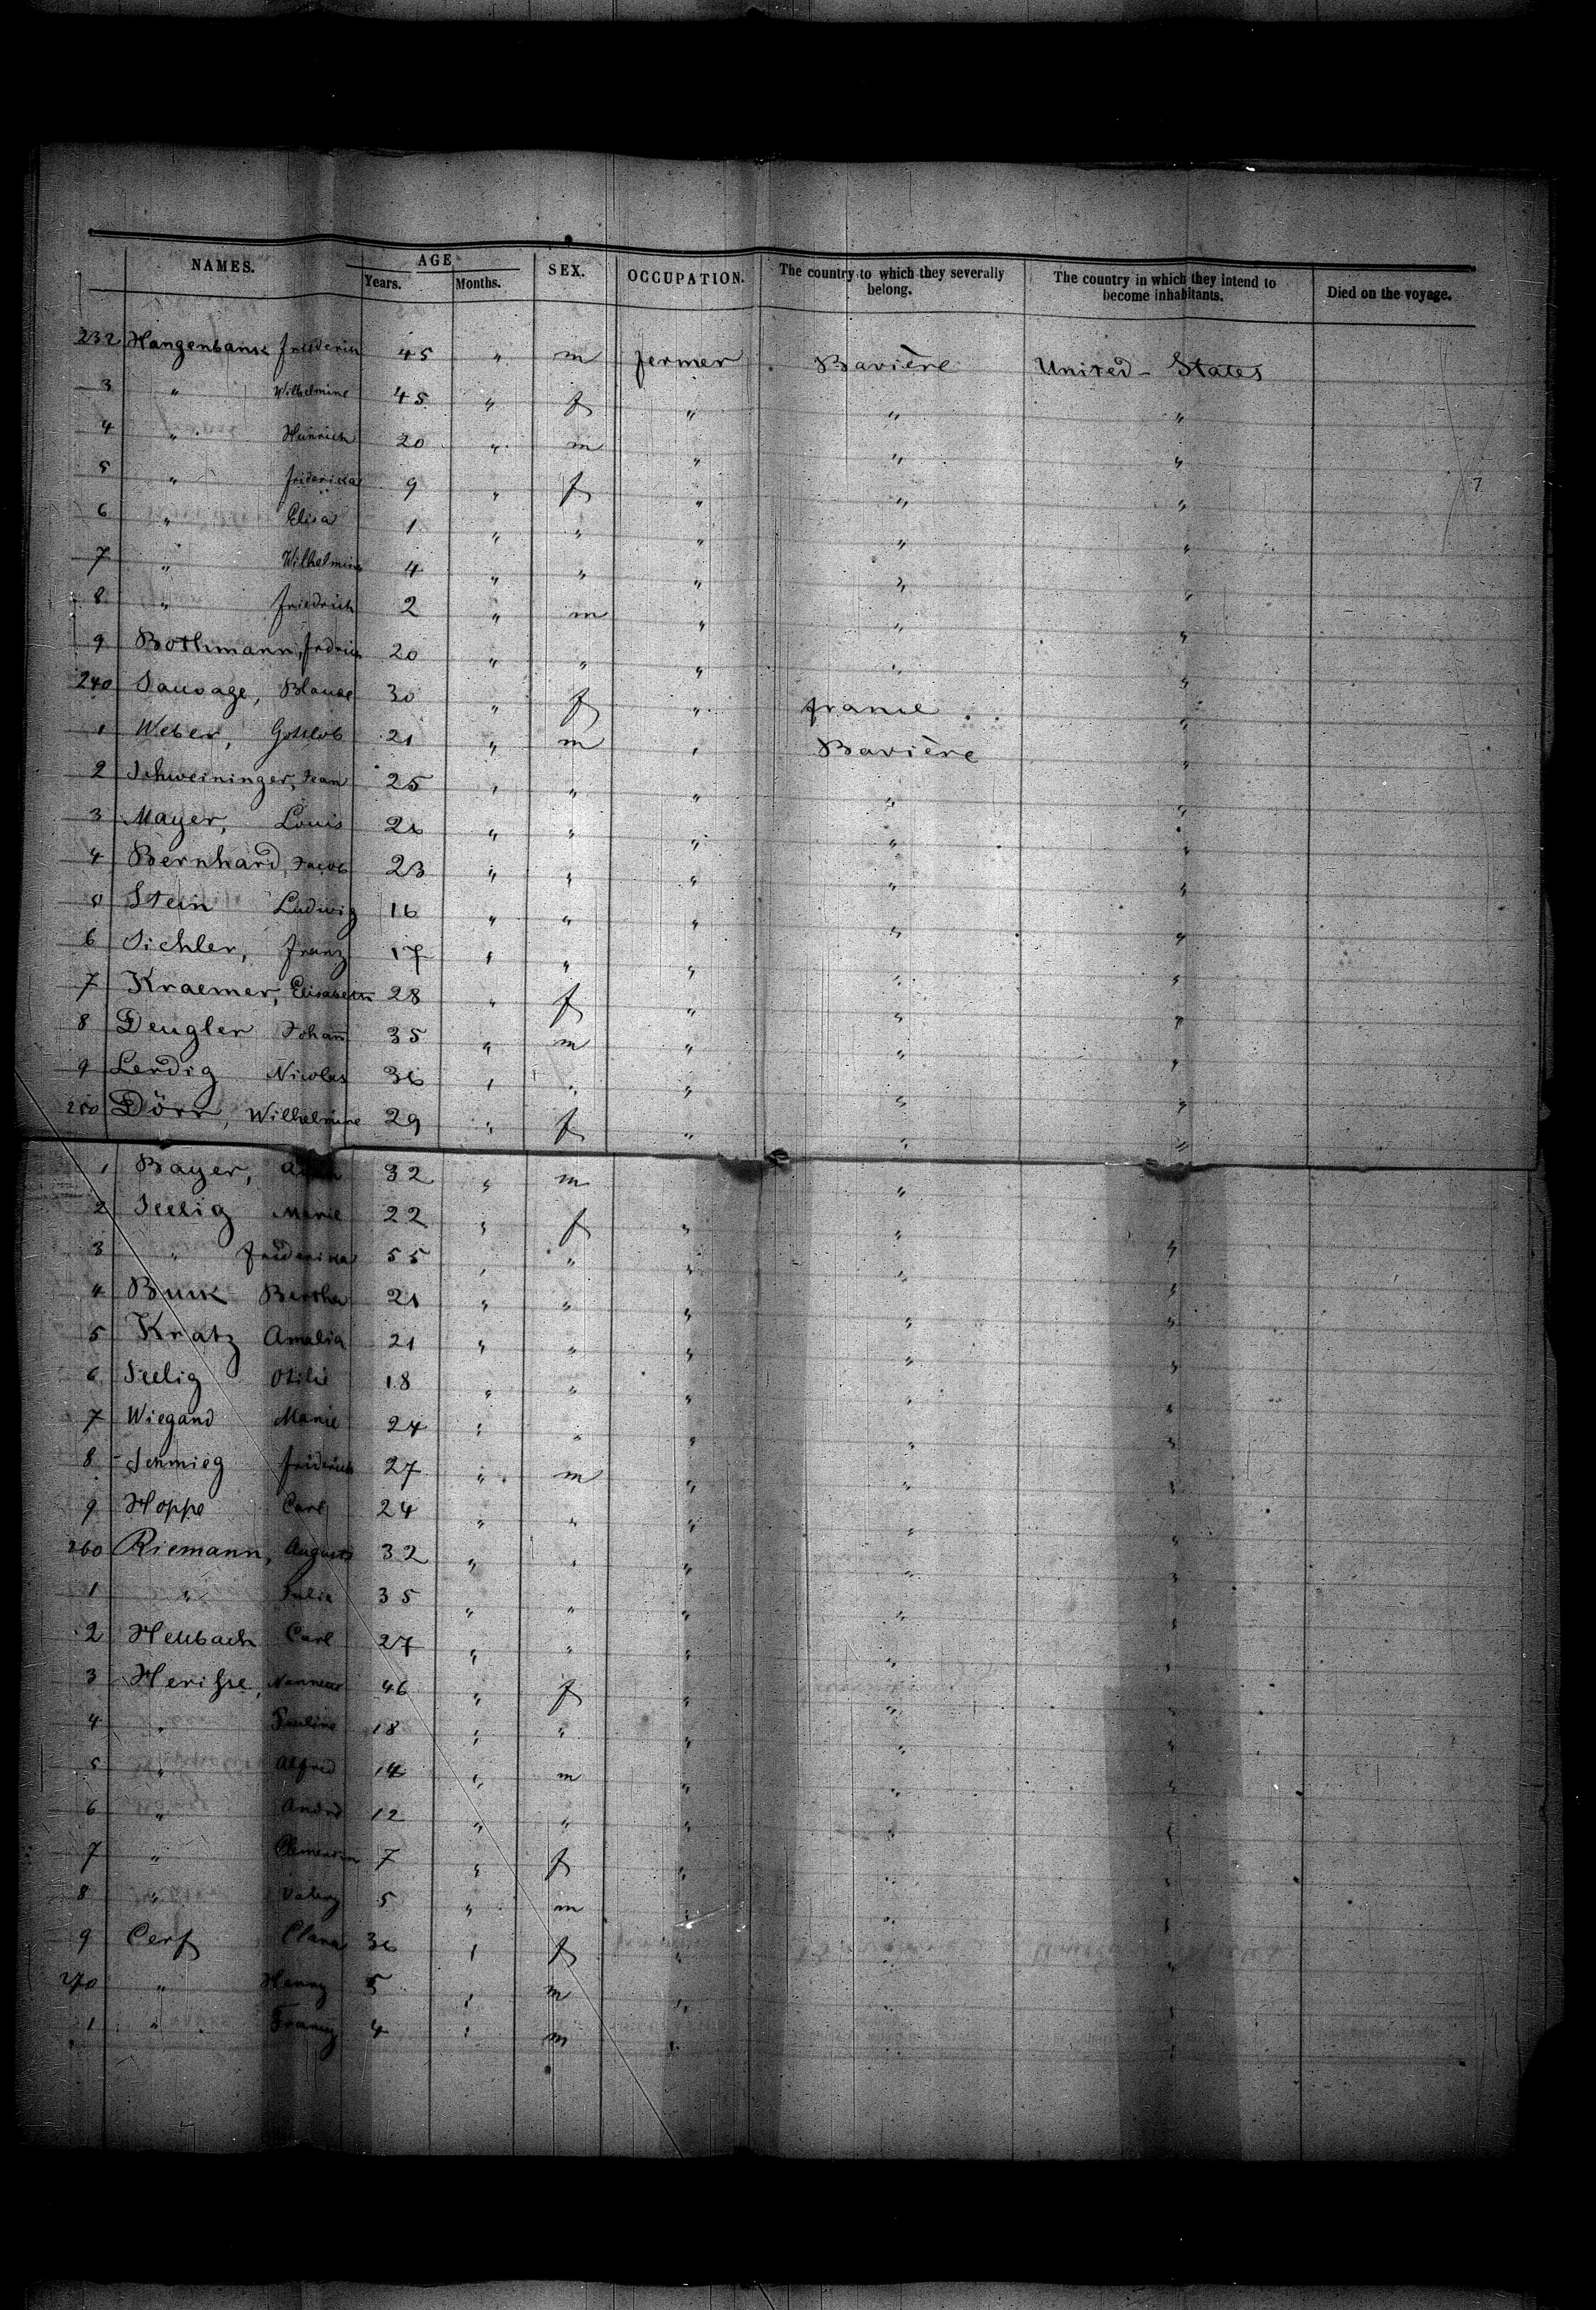 NAMES. AGE Years. Months. SEX. OCCUPATION. The country to which they severally belong. The country in which they intend to become inhabitants. Died on the voyage.
232 Hangenbansk Friederich 45 " m fermer Bavière United-States
3 " Wilhelmine 45 " f " " "
4 " Heinrich 20 " m " " "
5 " Friderika 9 " f " " "
6 " Elisa 1 " " " " "
7 " Wilhelmine 4 " " " " "
8 " Friedrich 2 " m " " "
9 Bothmann, Fridrich 20 " " " " "
240 Sauvage, 30 " f " France "
1 Weber, Gottlob 21 " m " Bavière "
2 Schweininger, Jean 25 " " " " "
3 Mayer, Louis 26 " " " " "
4 Bernhard, Jacob 23 " " " " "
5 Stein Ludwig 16 " " " " "
6 Sichler, Franz 17 " " " " "
7 Kraemer, Elisabeth 28 " f " " "
8 Deugler Johann 35 " m " " "
9 Lerdig Nicolas 36 " " " " "
250 Dörr, Wilhelmine 29 " f " " "
1 Bayer, 32 " m "
2 Seelig Marie 22 " f " " "
3 " Friderika 55 " " " " "
4 Burk Bertha 21 " " " " "
5 Kratz Amalia 21 " " " " "
6 Seelig Otilie 18 " " " " "
7 Wiegand Marie 24 " " " " "
8 Schmieg Friderich 27 " m " " "
9 Hoppe Carl 24 " " " " "
260 Riemann, August 32 " " " " "
1 " Julie 35 " " " " "
2 Hellbach Carl 27 " " " " "
3 Herisse, 46 " f " " "
4 " Pauline 18 " " " " "
5 " Alfred 14 " m " " "
6 " André 12 " " " " "
7 " 7 " f " " "
8 " Valery 5 " m " " "
9 Cerf Clara 36 " f " " "
270 " Henry 5 " m " " "
1 " Franz 4 " m " " "